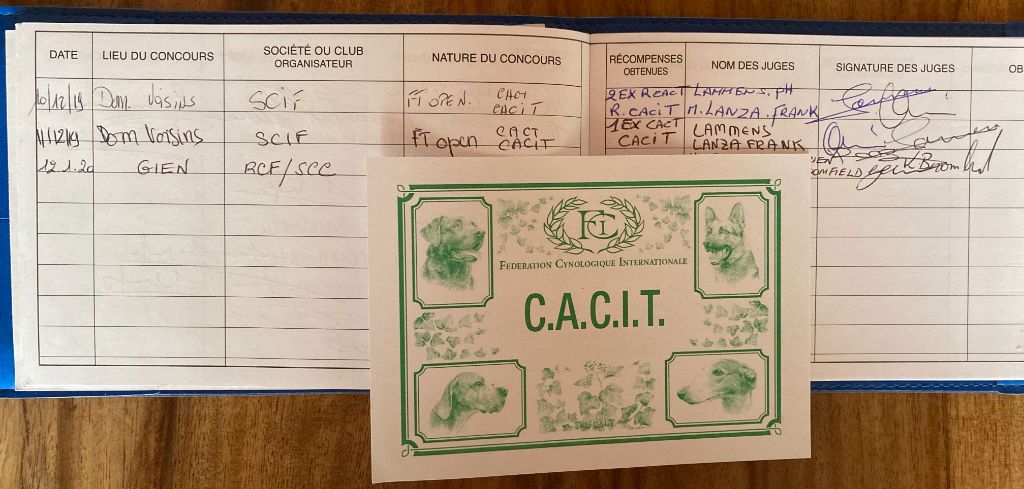 DATE LIEU DU CONCOURS SOCIÉTÉ OU CLUB ORGANISATEUR NATURE DU CONCOURS RÉCOMPENSES OBTENUES NOM DES JUGES SIGNATURE DES JUGES OB
10/12/19 Dom. Voisins SCIF FT OPEN. CACT 2EX RCACT LAMMENS. PH
CACIT R. CACIT M. LANZA. FRANK
11/12/19 Dom Voisins SCIF FT open CACT 1EX CACT LAMMENS
CACIT CACIT LANZA FRANK
12.1.20 GIEN RCF/SCC
OMFIELD
FCI
FEDERATION CYNOLOGIQUE INTERNATIONALE
C.A.C.I.T.